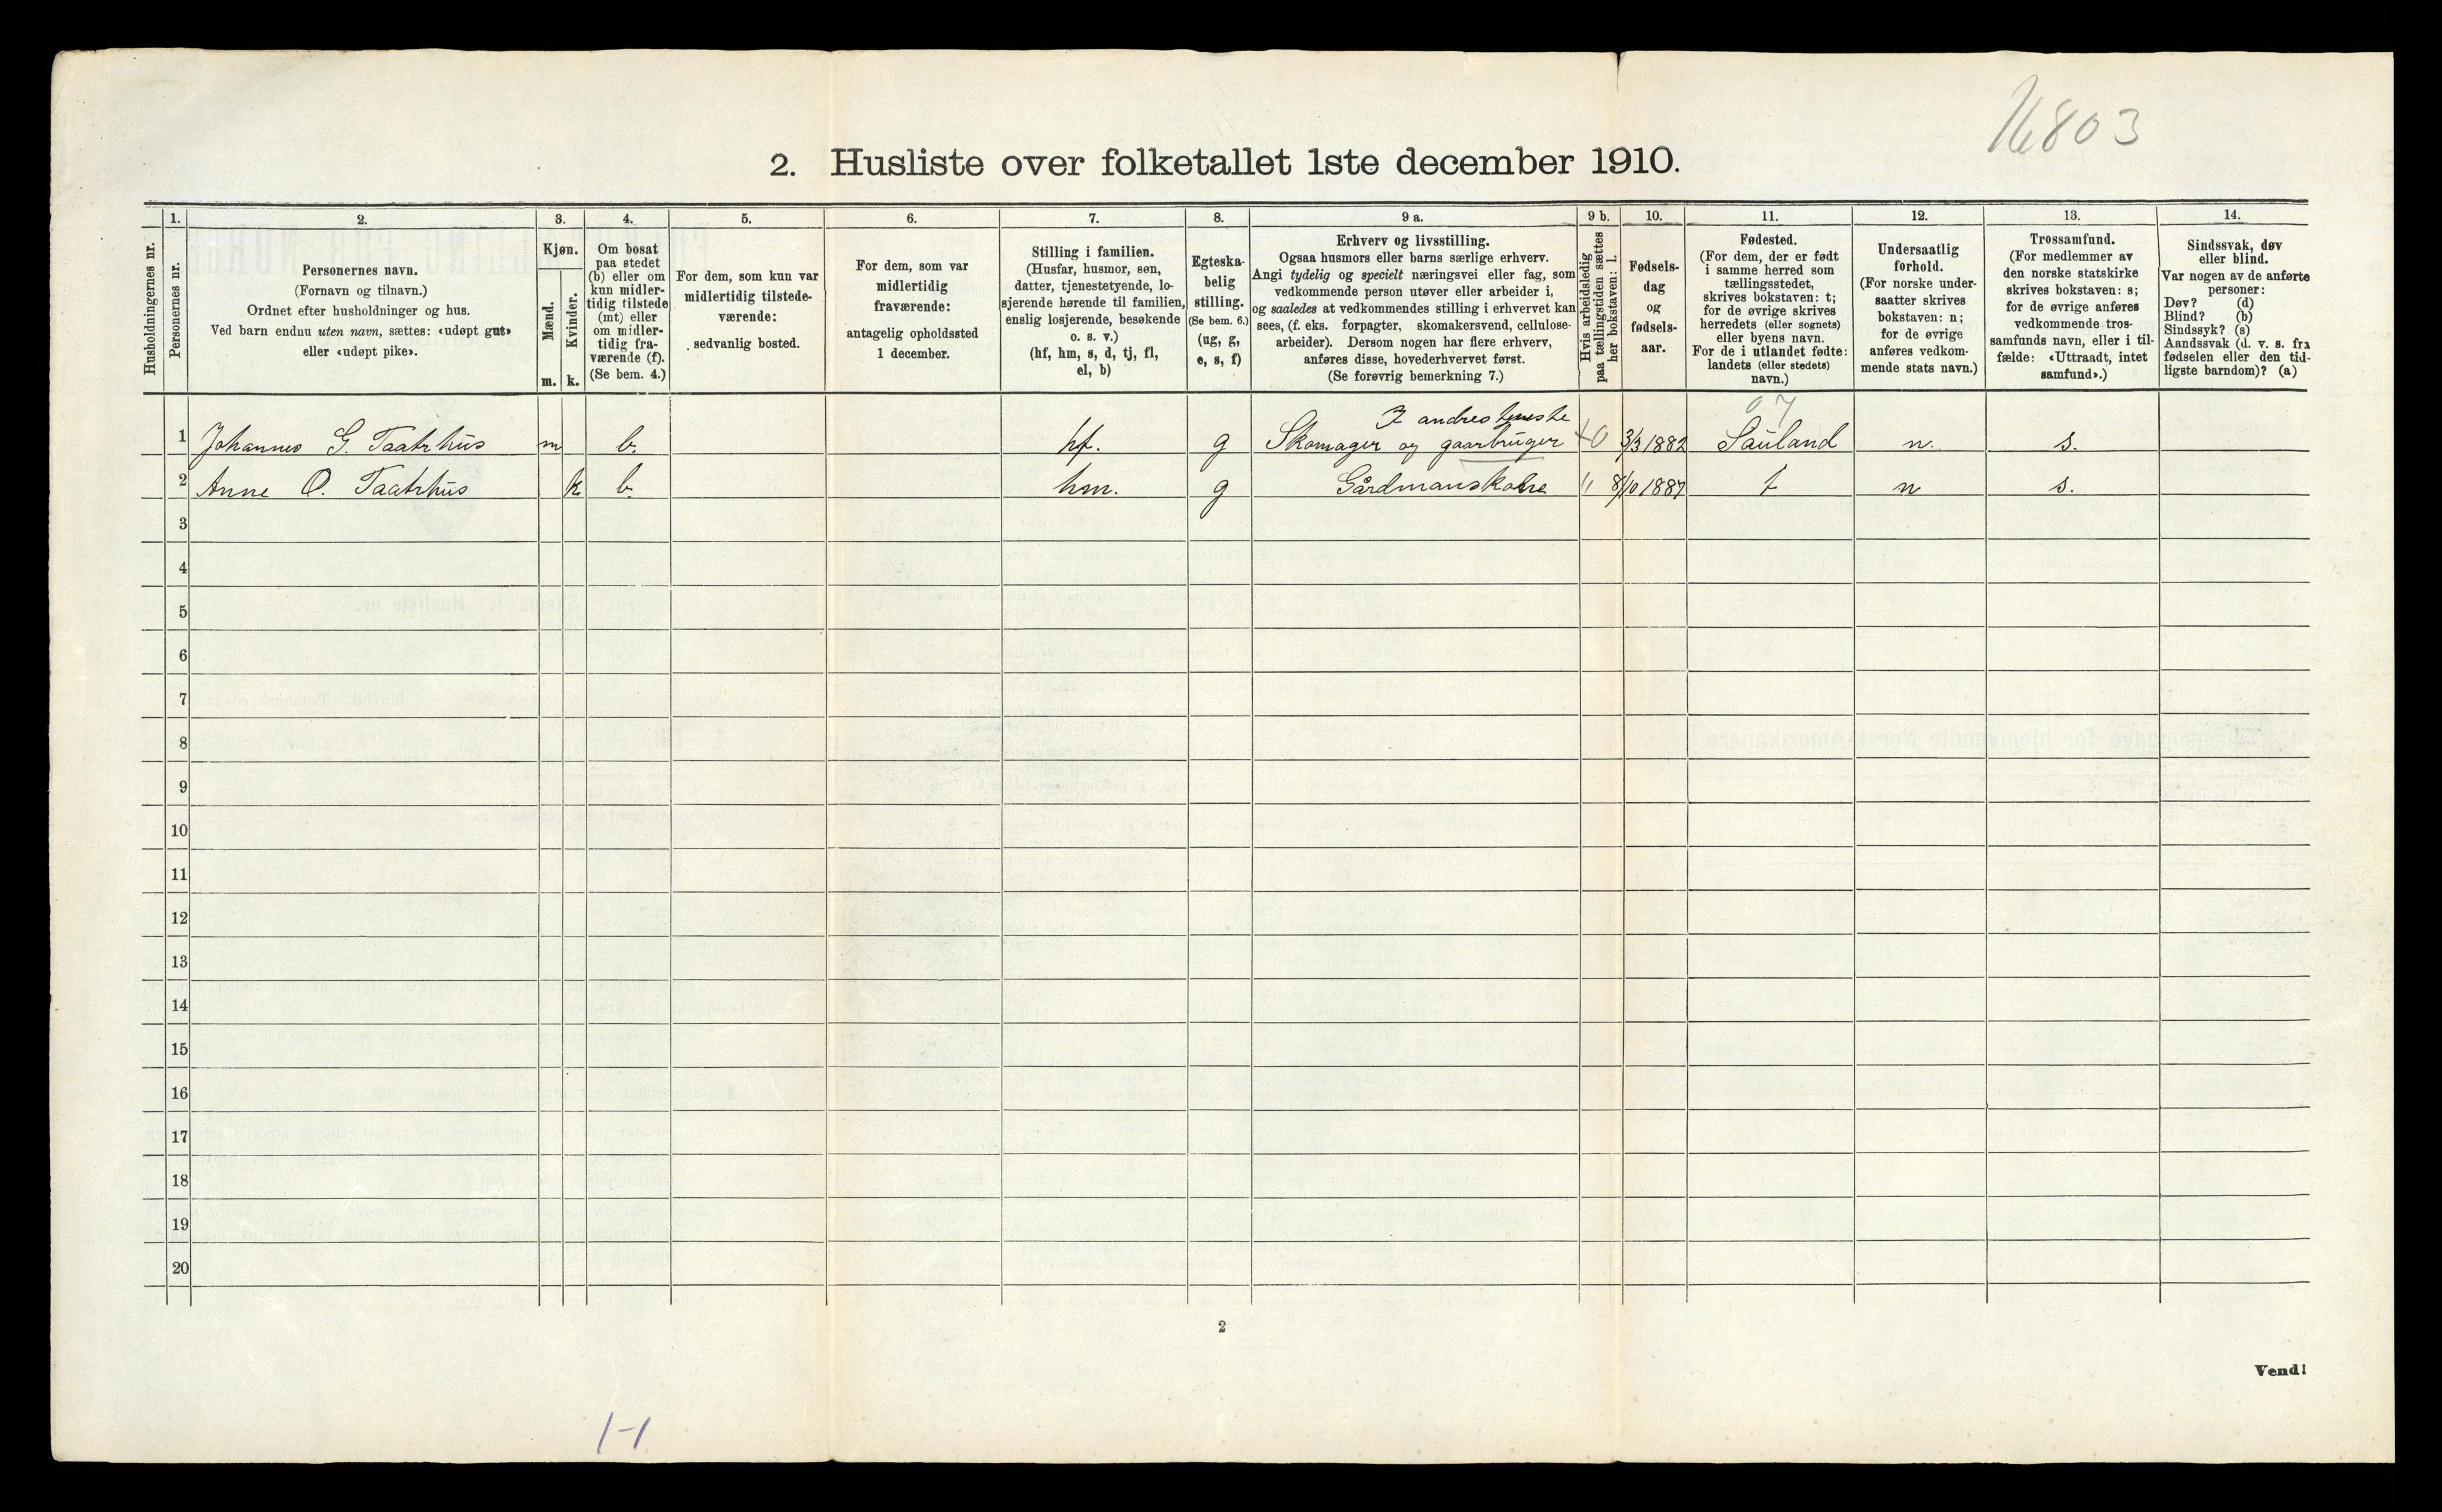 16803
2. Husliste over folketallet 1ste december 1910.
Husholdningernes nr.
1.
Personernes nr.
2.
Personernes navn.
(Fornavn og tilnavn.)
Ordnet efter husholdninger og hus.
Ved barn endnu uten navn, sættes: «udøpt gut»
eller «udøpt pike».
3.
Kjøn.
Mænd.
m.
Kvinder.
k.
4.
Om bosat
paa stedet
(b) eller om
kun midler-
tidig tilstede
(mt) eller
om midler-
tidig fra-
værende (f).
(Se bem. 4.)
5.
For dem, som kun var
midlertidig tilstede-
værende:
sedvanlig bosted.
6.
For dem, som var
midlertidig
fraværende:
antagelig opholdssted
1 december.
7.
Stilling i familien.
(Husfar, husmor, søn,
datter, tjenestetyende, lo-
sjerende hørende til familien,
enslig losjerende, besøkende
o. s. v.)
(hf, hm, s, d, tj, fl,
el, b)
8.
Egteska-
belig
stilling.
(Se bem. 6.)
(ug, g,
e, s, f)
9 a.
Erhverv og livsstilling.
Ogsaa husmors eller barns særlige erhverv.
Angi tydelig og specielt næringsvei eller fag, som
vedkommende person utøver eller arbeider i,
og saaledes at vedkommendes stilling i erhvervet kan
sees, (f. eks. forpagter, skomakersvend, cellulose-
arbeider). Dersom nogen har flere erhverv,
anføres disse, hovederhvervet først.
(Se forøvrig bemerkning 7.)
9 b.
Hvis arbeidsledig
paa tællingstiden sættes
her bokstaven: l.
10.
Fødsels-
dag
og
fødsels-
aar.
11.
Fødested.
(For dem, der er født
i samme herred som
tællingsstedet,
skrives bokstaven: t;
for de øvrige skrives
herredets (eller sognets)
eller byens navn.
For de i utlandet fødte:
landets (eller stedets)
navn.)
12.
Undersaatlig
forhold.
(For norske under-
saatter skrives
bokstaven: n;
for de øvrige
anføres vedkom-
mende stats navn.)
13.
Trossamfund.
(For medlemmer av
den norske statskirke
skrives bokstaven: s;
for de øvrige anføres
vedkommende tros-
samfunds navn, eller i til-
fælde: «Uttraadt, intet
samfund».)
14.
Sindssvak, døv
eller blind.
Var nogen av de anførte
personer:
Døv? (d)
Blind? (b)
Sindssyk? (s)
Aandssvak (d. v. s. fra
fødselen eller den tid-
ligste barndom)? (a)
07
I andres
1 Johannes G. Taatrhus m b. hf. g Skomager og gaarbruger 3/3 1882 Sauland n. s.
2 Anne O. Taatrhus k b. hm. g Gårdmanskone " 8/10 1887 t n s.
3
4
5
6
7
8
9
10
11
12
13
14
15
16
17
18
19
20
2
Vend!
1-1